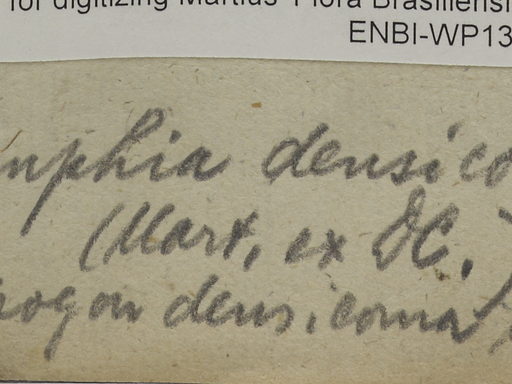 for digitizing Martius' Flora Brasiliensi
ENBI-WP13
nphia densico
(Mart. ex DC.)
pogon densicoma